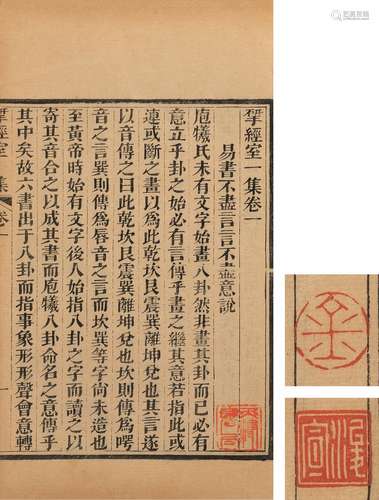 揅經室一集卷一
易書不盡言言不盡意說
庖犧氏未有文字始畫八卦然非畫其卦而已必有
意立乎卦之始必有言傳乎畫之繼其意若指此或
連或斷之畫以為此乾坎艮震巽離坤兌也其言遂
以音傳之曰此乾坎艮震巽離坤兌也坎則傳為嘮
音之言巽則傳為唇音之言而坎巽等字尚未造也
至黃帝時始有文字後人始指八卦之字而讀之以
寄其音合之以成其書而庖犧八卦命名之意傳乎
其中矣故六書出于八卦而指事象形形聲會意轉
揅經室一集 卷一
一